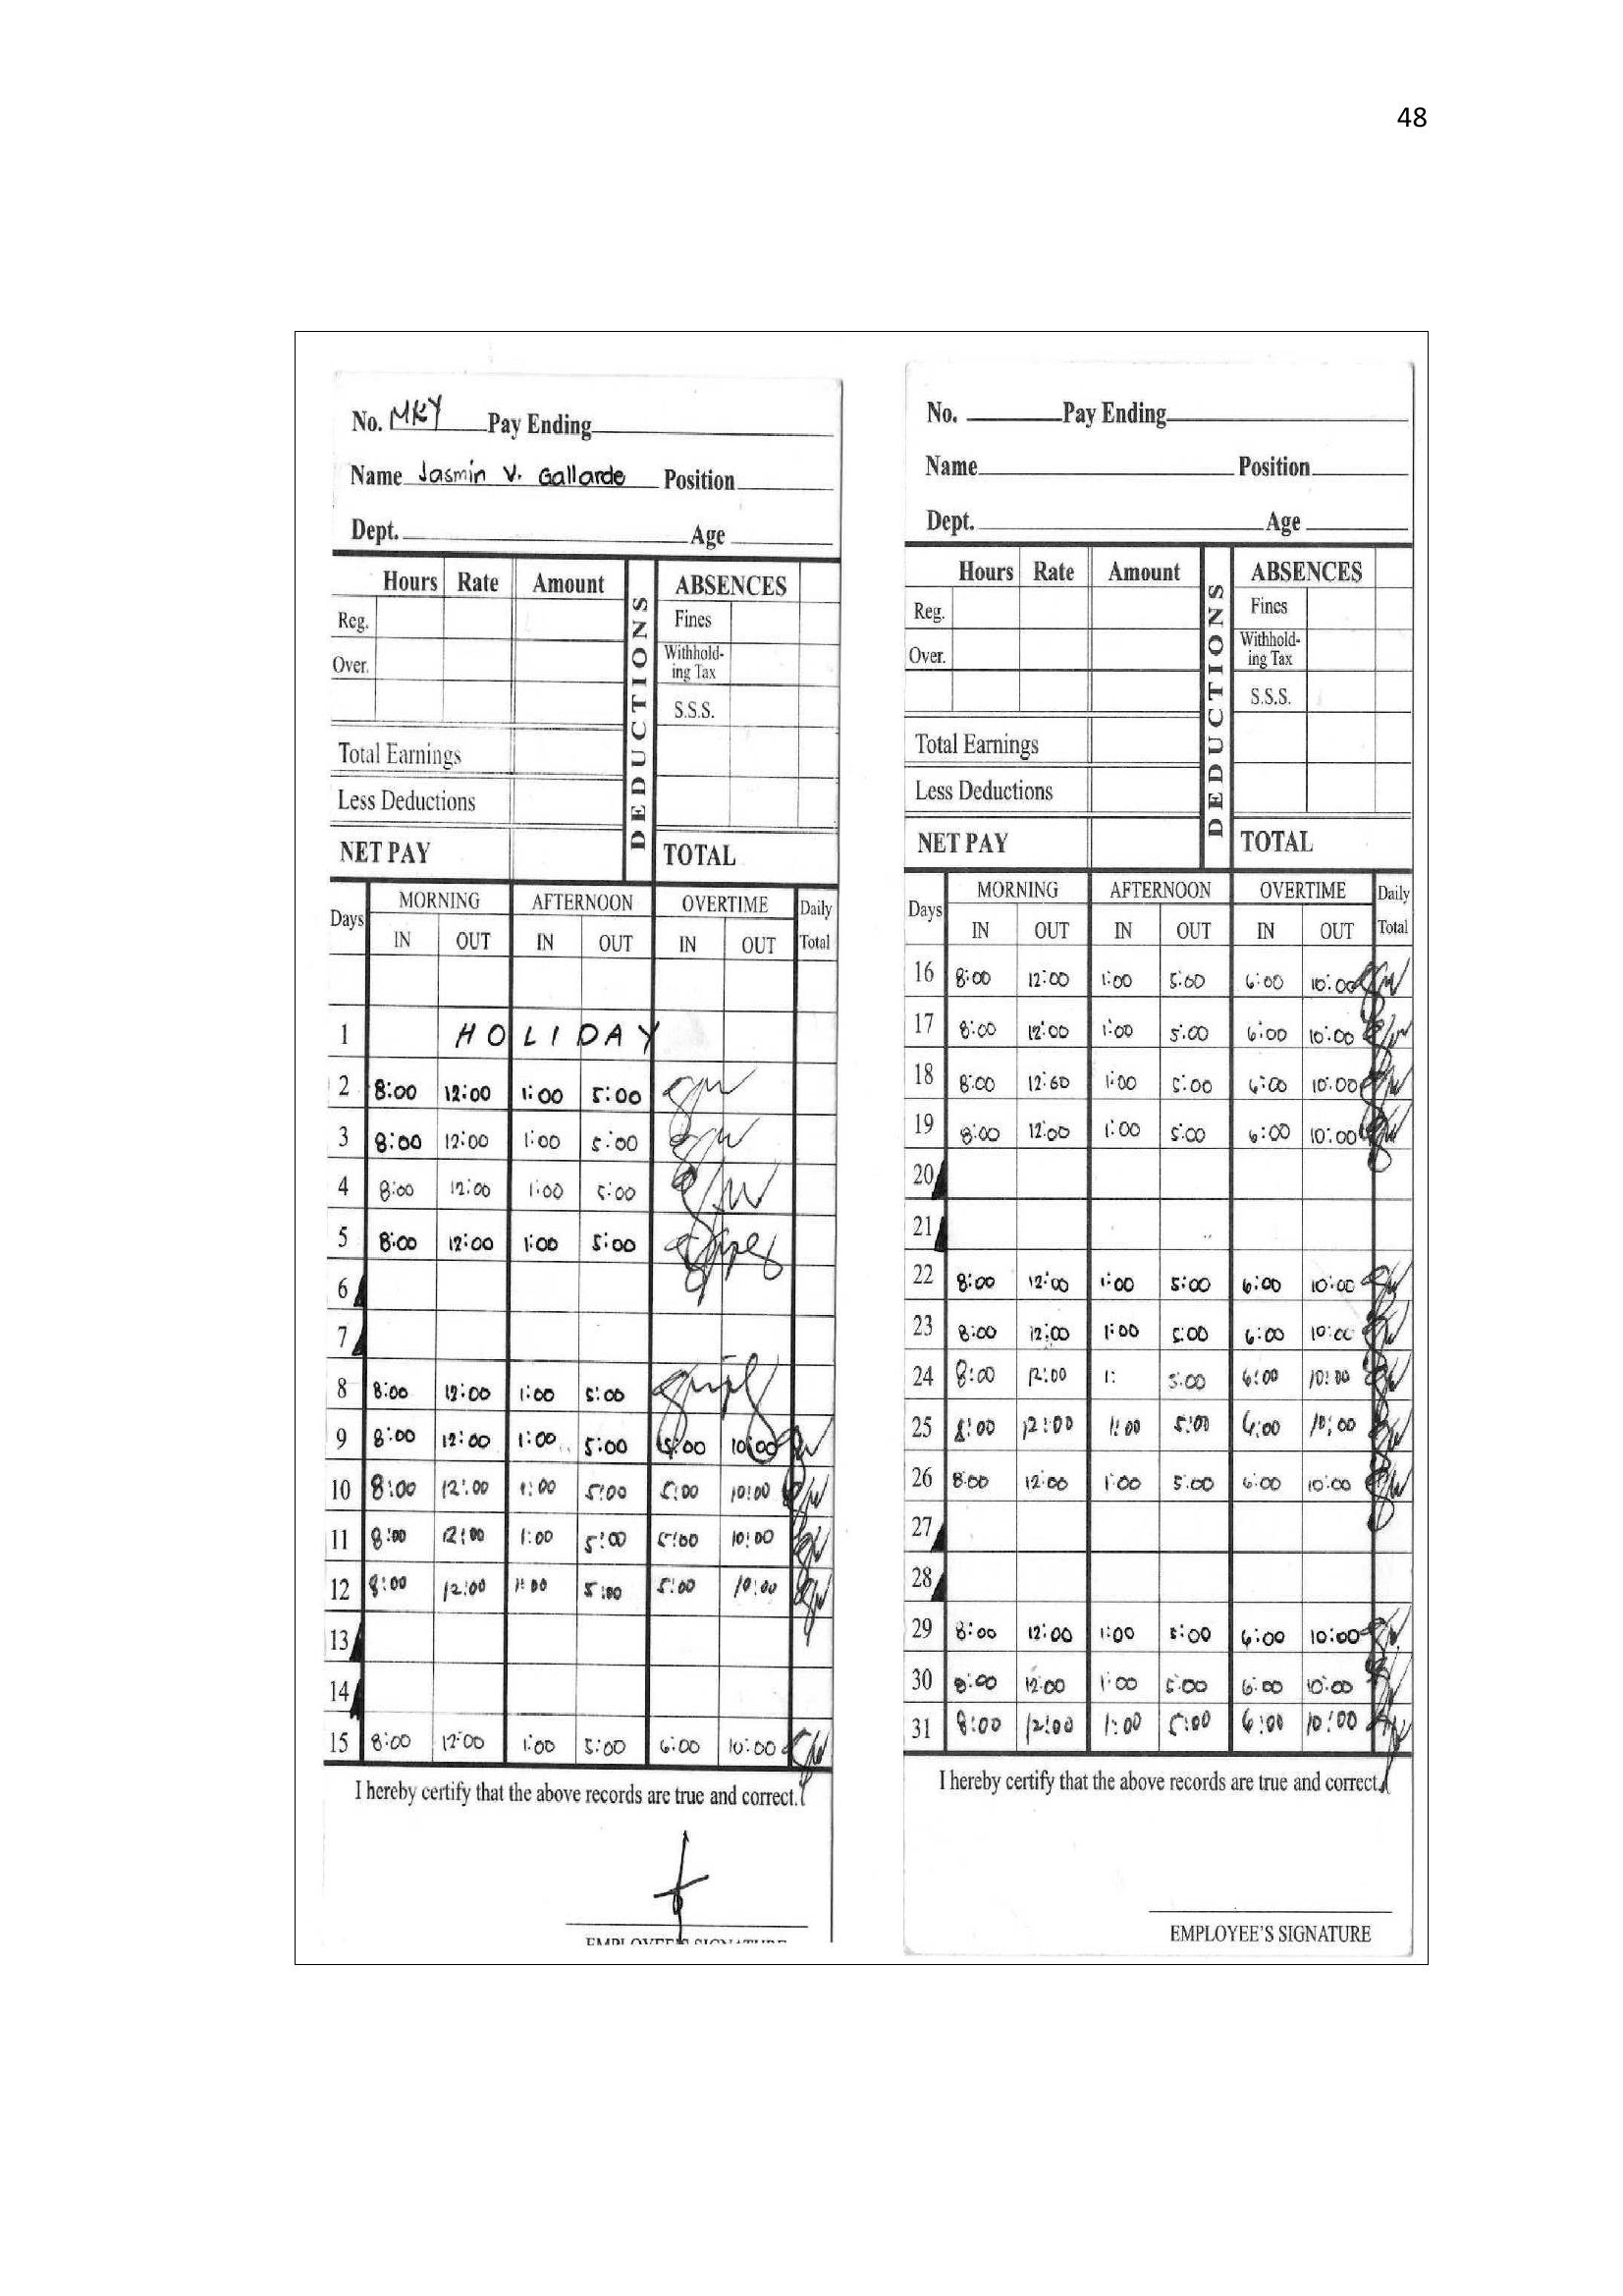 48
No. MKY Pay Ending
Name Jasmin V. Gallarde Position
Dept. Age
Hours Rate Amount DEDUCTIONS ABSENCES
Reg. Fines
Over. Withhold-
ing Tax
S.S.S.
Total Earnings
Less Deductions
NET PAY TOTAL
Days MORNING AFTERNOON OVERTIME Daily
IN OUT IN OUT IN OUT Total
1 HOLIDAY
2 8:00 12:00 1:00 5:00
3 8:00 12:00 1:00 5:00
4 8:00 12:00 1:00 5:00
5 8:00 12:00 1:00 5:00
6
7
8 8:00 12:00 1:00 5:00
9 8:00 12:00 1:00 5:00 5:00 10:00
10 8:00 12:00 1:00 5:00 5:00 10:00
11 8:00 12:00 1:00 5:00 5:00 10:00
12 8:00 12:00 1:00 5:00 5:00 10:00
13
14
15 8:00 12:00 1:00 5:00 6:00 10:00
I hereby certify that the above records are true and correct.
EMPLOYEE'S SIGNATURE
No. Pay Ending
Name Position
Dept. Age
Hours Rate Amount DEDUCTIONS ABSENCES
Reg. Fines
Over. Withhold-
ing Tax
S.S.S.
Total Earnings
Less Deductions
NET PAY TOTAL
Days MORNING AFTERNOON OVERTIME Daily
IN OUT IN OUT IN OUT Total
16 8:00 12:00 1:00 5:00 6:00 10:00
17 8:00 12:00 1:00 5:00 6:00 10:00
18 8:00 12:00 1:00 5:00 6:00 10:00
19 8:00 12:00 1:00 5:00 6:00 10:00
20
21
22 8:00 12:00 1:00 5:00 6:00 10:00
23 8:00 12:00 1:00 5:00 6:00 10:00
24 8:00 12:00 1: 5:00 6:00 10:00
25 8:00 12:00 1:00 5:00 6:00 10:00
26 8:00 12:00 1:00 5:00 6:00 10:00
27
28
29 8:00 12:00 1:00 5:00 6:00 10:00
30 8:00 12:00 1:00 5:00 6:00 10:00
31 8:00 12:00 1:00 5:00 6:00 10:00
I hereby certify that the above records are true and correct.
EMPLOYEE'S SIGNATURE